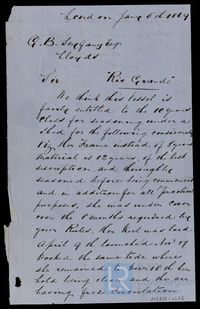 London Jany 6th 1869
G. B.
Lloyds
Sir Rio Grande
We think this Vessel is
fairly entitled to the 10 years
Class for seasoning under a
shed for the following
Her Frame instead of 8 years
Material is 12 years, of the best
description and thoroughly
seasoned before being commenced
and in addition for all practical
purposes, she was under cover
over the 6 months required by
your Rules. Her keel was laid
April 9th launched Nov 17
Docked the same tide where
she remained her
hold being clear and the air
having free circulation